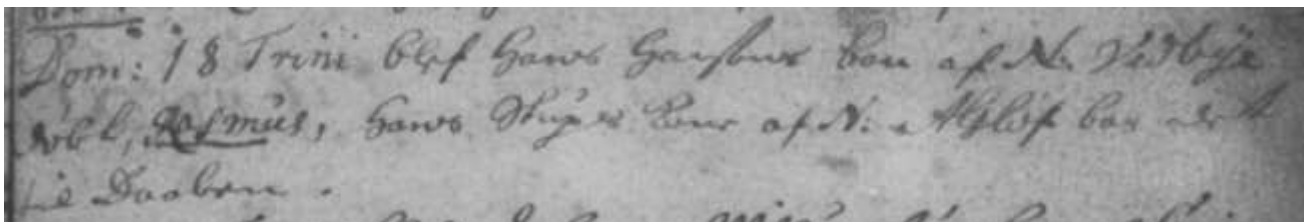 Dom: 18 Trini blef Hans Hansens barn af N. Vedbye
døbt, Rasmus, Hans Kone af N: Alsløf bar det
til Daaben.